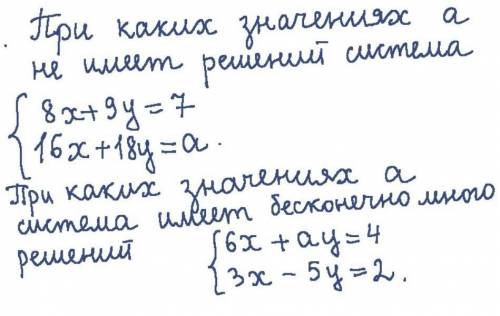 При каких значениях а
не имеет решений система
8x+9y=7
16x+18y=a.
При каких значениях а
система имеет бесконечно много
решений
6x+ay=4
3x-5y=2.